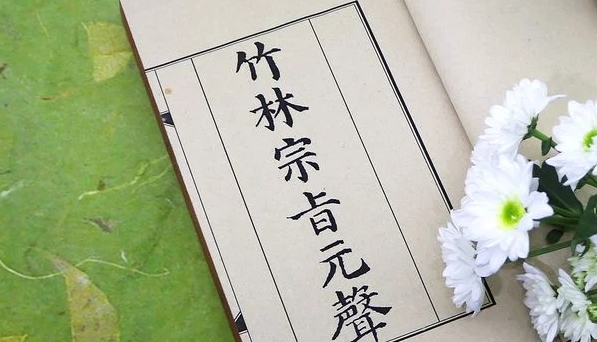 竹林宗㫖元聲